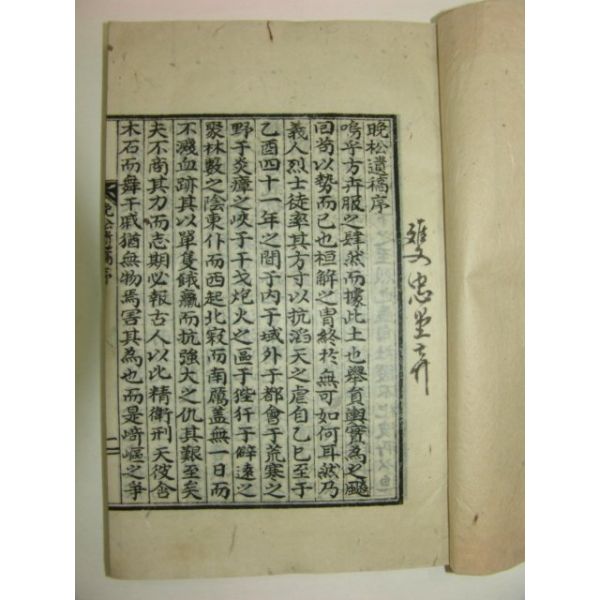 忠
晩松遺稿序
嗚乎方卉服之肆然而據此土也擧育輿實為之
回苟以勢而已也桓解之胄終於無可如何耳然乃
義人烈士徒率其方寸以抗滔天之虐自乙巳至于
乙酉四十一年之間于内于域外于都會于荒寒之
野于炎瘴之峽于干戈炮火之區于狴犴于僻遠之
聚林藪之陰東仆而西起北寂而南厲盖無一日而
不濺血跡其以單隻餓羸而抗強大之仇其艱至矣
夫不商其力而志期必報古人以比精衛刑天彼含
木石而舞干戚猶無物焉害其為也而是崎嶇之爭
晩松遺稿序